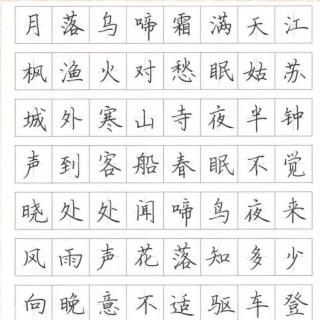 月落乌啼霜满天江
枫渔火对愁眠姑苏
城外寒山寺夜半钟
声到客船春眠不觉
晓处处闻啼鸟夜来
风雨声花落知多少
向晚意不适驱车登